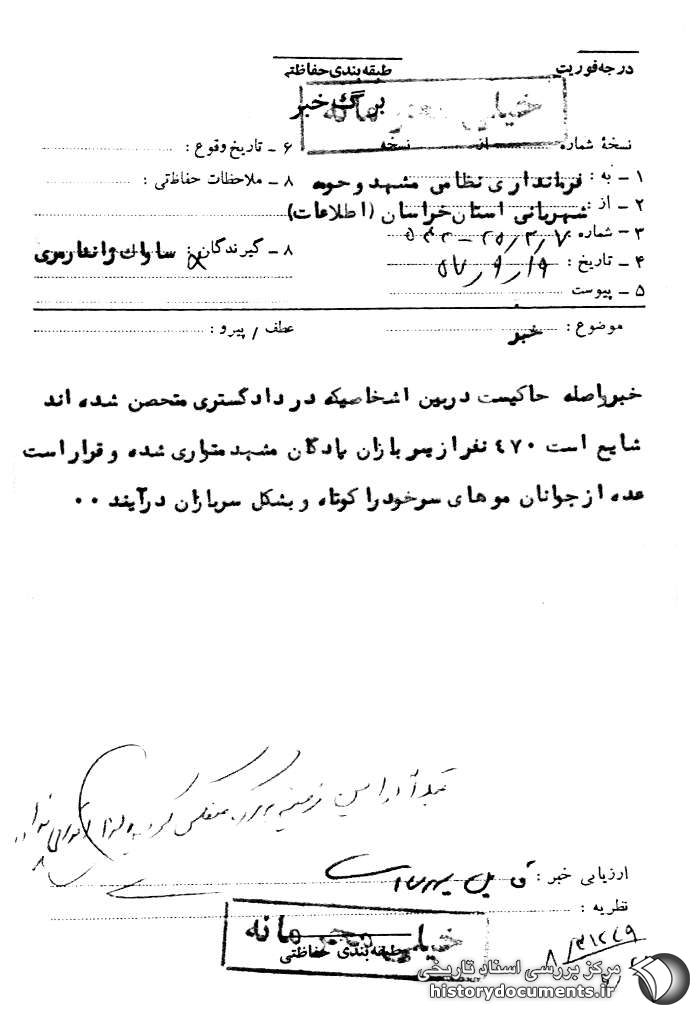 درجه فوریت
طبقه بندی حفاظتی
برگ خبر
خیلی محرمانه
نسخهٔ شماره از نسخه
۱ - به : فرمانداری نظامی مشهد و حومه
۲ - از : شهربانی استان خراسان (اطلاعات)
۳ - شماره :
۴ - تاریخ : ۵۷/۹/۱۹
۵ - پیوست
۶ - تاریخ وقوع :
۸ - ملاحظات حفاظتی :
۸ - گیرندگان : ساواک ژاندارمری
موضوع : خبر
عطف / پیرو :
خبر واصله حاکیست در بین اشخاصیکه در دادگستری متحصن شده اند
شایع است ٤٧٠ نفر از سربازان پادگان مشهد متواری شده و قرار است
عده از جوانان موهای سر خود را کوتاه و بشکل سربازان درآیند ۰۰
ارزیابی خبر :
نظریه :
خیلی محرمانه
طبقه بندی حفاظتی
مرکز بررسی اسناد تاریخی
historydocuments.ir